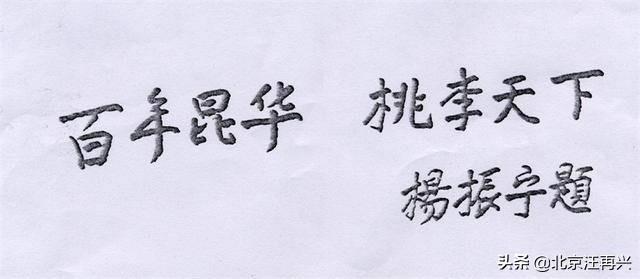 百年昆华 桃李天下
楊振宁題
头条 @北京汪再兴